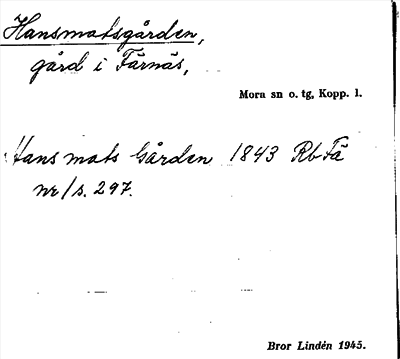 Hansmatsgården,
gård i Färnäs,
Mora sn o. tg, Kopp. l.
Hans mats Gården 1843 Rb Fä
nr/s. 297.
Bror Lindén 1945.